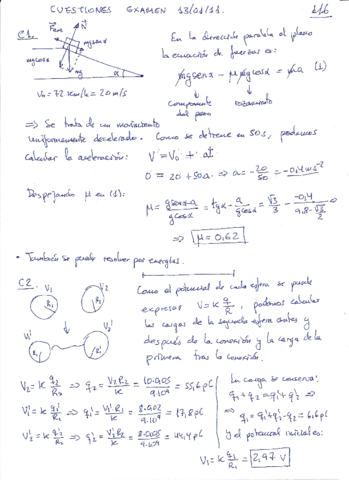 CUESTIONES EXAMEN 13/01/11. 116
C1.
F_roz N
mgsenα
mgcosα mg α
v₀ = 72 km/h = 20 m/s
En la dirección paralela al plano
la ecuación de fuerzas es:
mgsenα - μmgcosα = ma (1)
componente del peso
rozamiento
=> Se trata de un movimiento
uniformemente decelerado. Como se detiene en 50s, podemos
calcular la aceleración: V = V₀ + at
0 = 20 + 50a => a = -20/50 = -0,4 ms⁻²
Despejando μ en (1):
μ = (gsenα-a)/(gcosα) = tgα - a/(gcosα) = √3/3 - (-0,4)/(9,8·√3/2) =>
=> μ = 0,62
• También se puede resolver por energías.
C2. V₁ V₂
R₁ R₂
V' V'
R₁ R₂
Como el potencial de cada esfera se puede
expresar V = K q/R, podemos calcular
las cargas de la segunda esfera antes y
después de la conexión y la carga de la
primera tras la conexión.
V₂ = K q₂/R₂ => q₂ = V₂R₂/K = 10·0,05/9·10⁹ = 55,6 pC
V₁' = K q₁'/R₁ => q₁' = V₁'R₁/K = 8·0,02/9·10⁹ = 17,8 pC
V₂' = K q₂'/R₂ => q₂' = V₂'R₂/K = 8·0,05/9·10⁹ = 44,4 pC
La carga se conserva:
q₁ + q₂ = q₁' + q₂' =>
=> q₁ = q₁' + q₂' - q₂ = 6,6 pC
y el potencial inicial es:
V₁ = K q₁/R₁ = 2,97 V